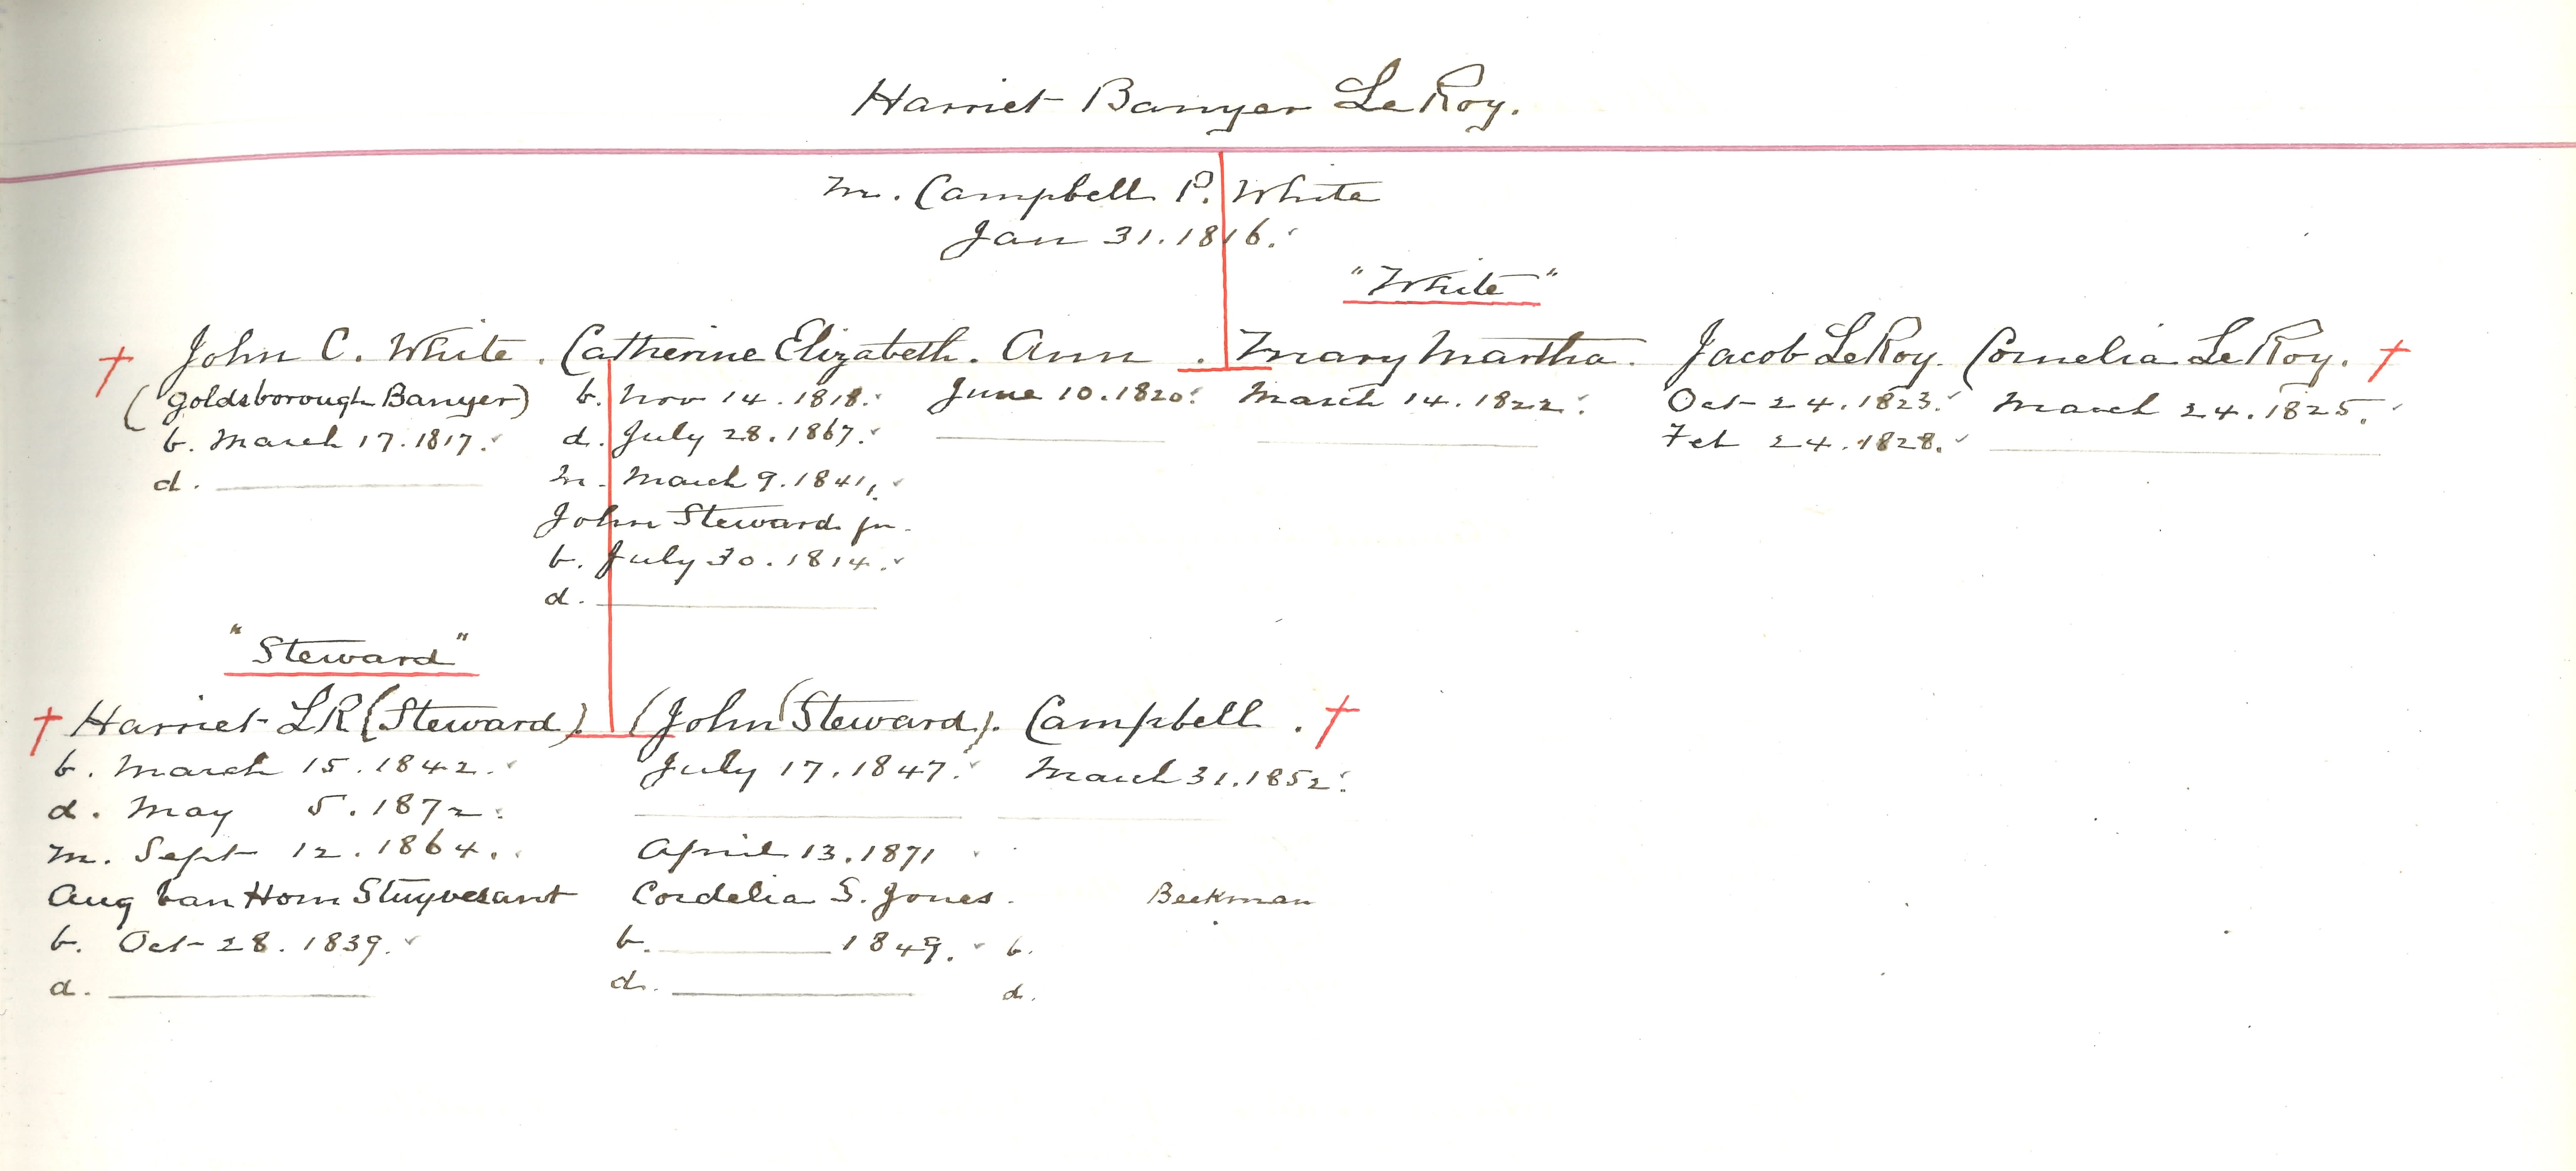 Harriet Banyer Le Roy.
m. Campbell P. White
Jan 31. 1816.
"White"
† John C. White. Catherine Elizabeth. Ann . Mary Martha. Jacob LeRoy. Cornelia Le Roy. †
(Goldsborough Banyer) b. Nov 14. 1818. June 10. 1820. March 14. 1822. Oct 24. 1823. March 24. 1825.
b. March 17. 1817. d. July 28. 1867. Feb 24. 1828.
d. m. March 9. 1841.
John Steward jr.
b. July 30. 1814.
d.
"Steward"
† Harriet LR (Steward). (John (Steward). Campbell . †
b. March 15. 1842. July 17. 1847. March 31. 1852.
d. May 5. 1872.
m. Sept 12. 1864. April 13. 1871
Aug van Horn Stuyvesant Cordelia S. Jones. Beekman
b. Oct 28. 1839. b. 1849. b.
d. d. d.